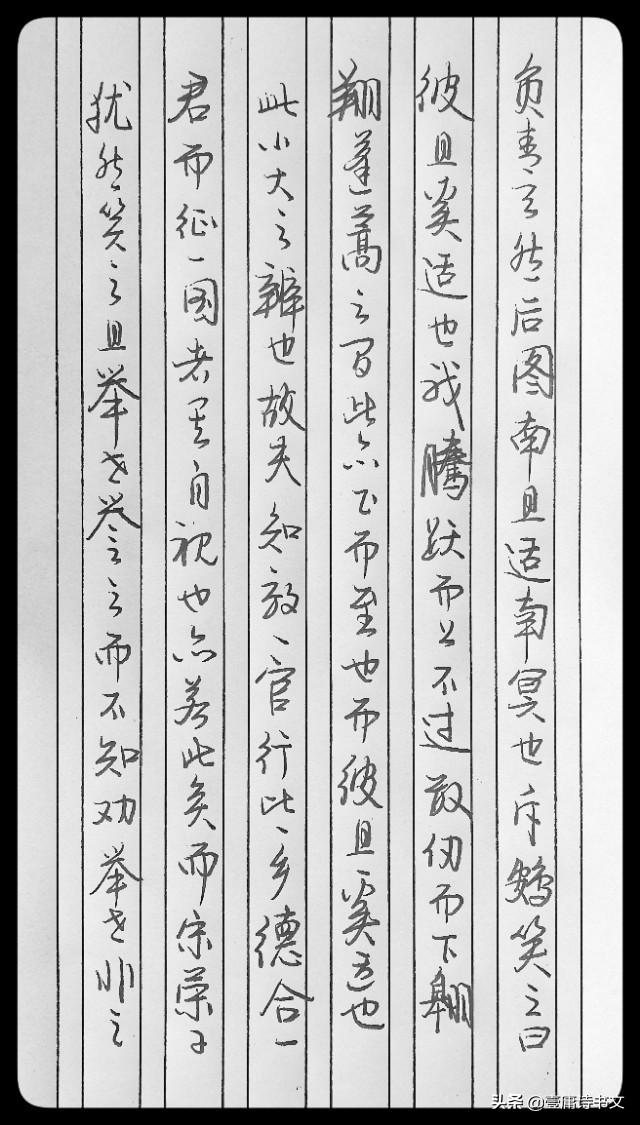 负青云然后图南且适南冥也斥鴳笑之曰
彼且奚适也我腾跃而上不过数仞而下翱
翔蓬蒿之间此亦飞而至也而彼且奚适也
此小大之辨也故夫知效一官行比一乡德合一
君而征一国者其自视也亦若此矣而宋荣子
犹然笑之且举世誉之而不知劝举世非之
头条 @壹庸诗书文